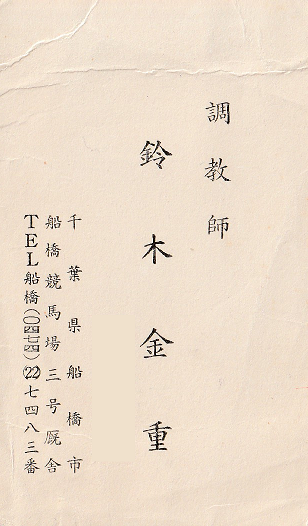 調教師
鈴木金重
千葉県船橋市
船橋競馬場三号厩舎
TEL船橋(〇四七四)(22)七四八三番